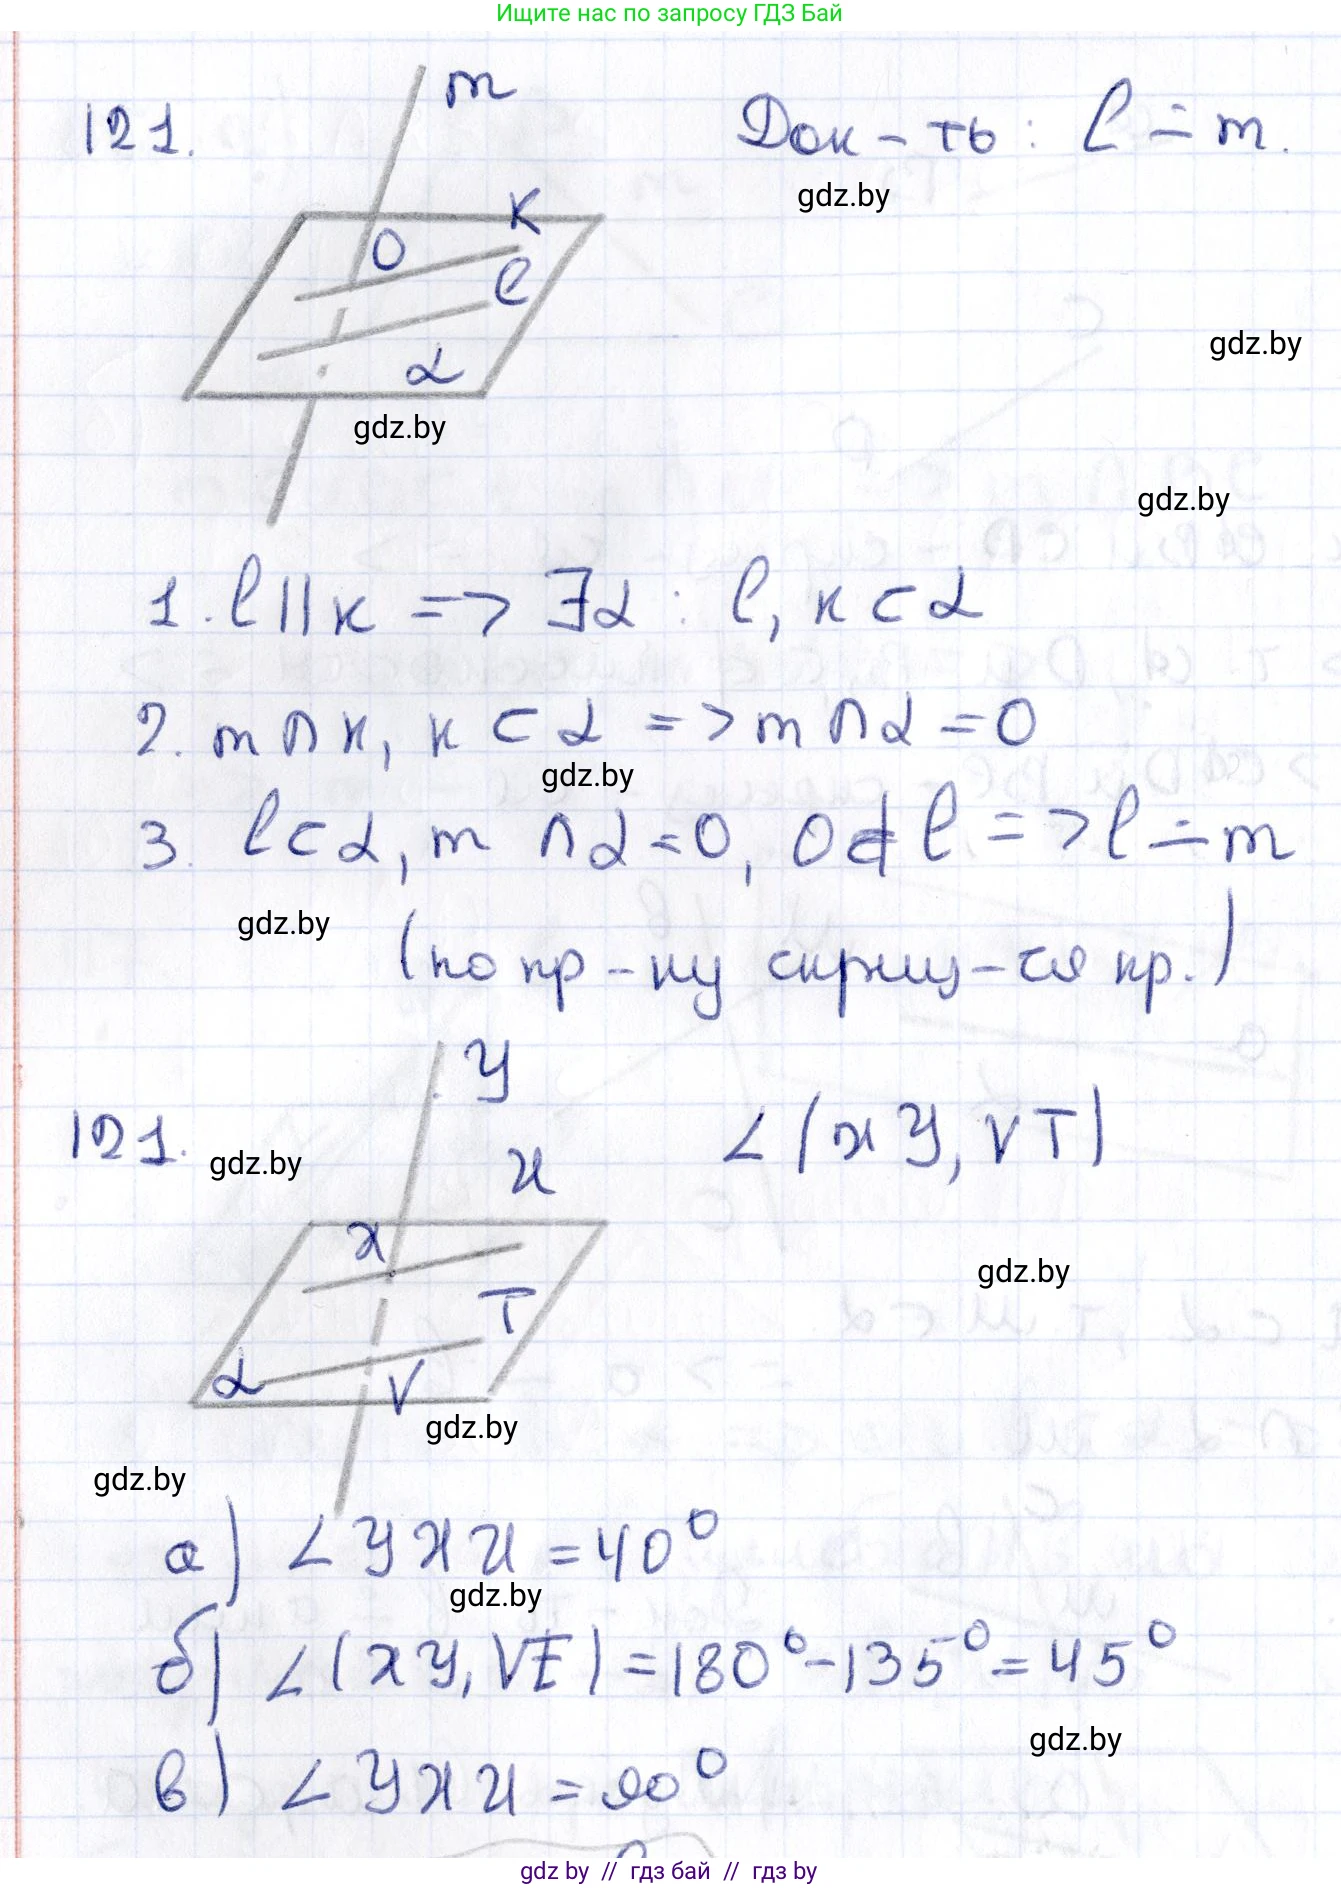 Ищите нас по запросу ГДЗ Бай
121.
m
Док-ть: l ∸ m.
gdz.by
K
O
l
gdz.by
α
gdz.by
gdz.by
1. l || к => ∃α : l, к ⊂ α
2. m ∩ к, к ⊂ α => m ∩ α = O
gdz.by
3. l ⊂ α, m ∩ α = O, O ∉ l => l ∸ m
gdz.by
(по пр-ку скрещ-ся пр.)
У
121.
gdz.by
И
∠(ХУ, VT)
Х
gdz.by
T
α
V
gdz.by
gdz.by
а) ∠УХИ = 40°
gdz.by
б) ∠(ХУ, VE) = 180° - 135° = 45°
gdz.by
в) ∠УХИ = 90°
gdz by // гдз бай // гдз by